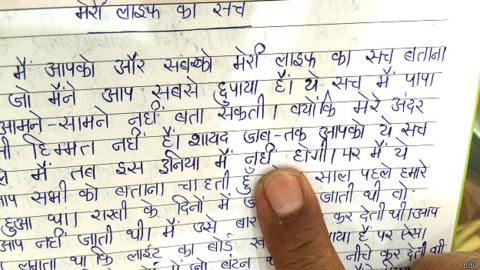 मेरी लाइफ का सच
मैं आपको और सबको मेरी लाइफ का सच बताना
जो मैंने आप सबसे छुपाया है। ये सच मैं पापा
आमने-सामने नहीं बता सकती। क्योंकि मेरे अंदर
हिम्मत नहीं है। शायद जब-तक आपको ये सच
मैं तब इस दुनिया में नहीं होंगी। पर मैं ये
आप सभी को बताना चाहती हूँ साल पहले हमारे
हुआ था। राखी के दिनों में जाती थी वो
आप नहीं जाती थी। मैं उसे बार कर देती थी।आप
लगता था कि लाईट का बोर्ड गया है पर ऐसा
बटन नीचे कर देती थी
BBC